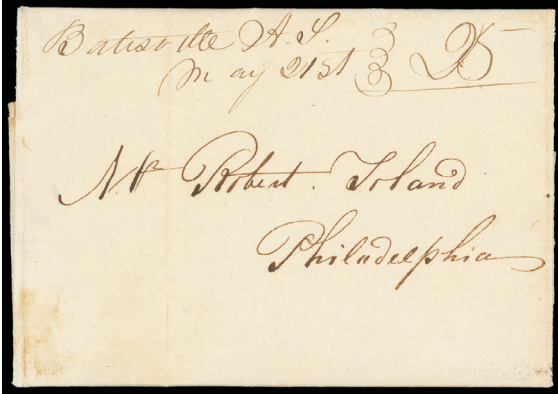 Batesville A.S. 25
May 21st
Mr Robert Toland
Philadelphia